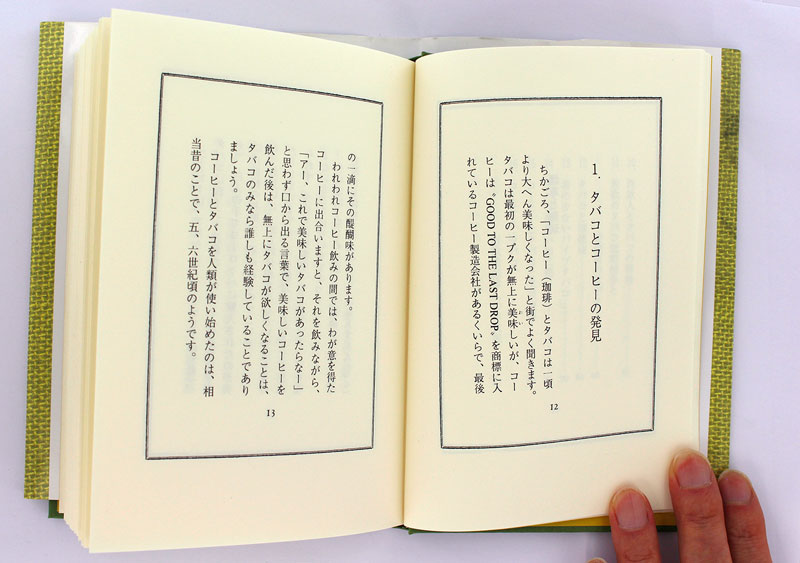 1. タバコとコーヒーの発見
ちかごろ、「コーヒー(珈琲)とタバコは一頃
より大へん美味しくなった」と街でよく聞きます。
タバコは最初の一プクが無上に美味しいが、コー
ヒーは〝GOOD TO THE LAST DROP〟を商標に入
れているコーヒー製造会社があるくらいで、最後
12
の一滴にその醍醐味があります。
われわれコーヒー飲みの間では、わが意を得た
コーヒーに出合いますと、それを飲みながら、
「アー、これで美味しいタバコがあったらなー」
と思わず口から出る言葉で、美味しいコーヒーを
飲んだ後は、無上にタバコが欲しくなることは、
タバコのみなら誰しも経験していることであり
ましょう。
コーヒーとタバコを人類が使い始めたのは、相
当昔のことで、五、六世紀頃のようです。
13